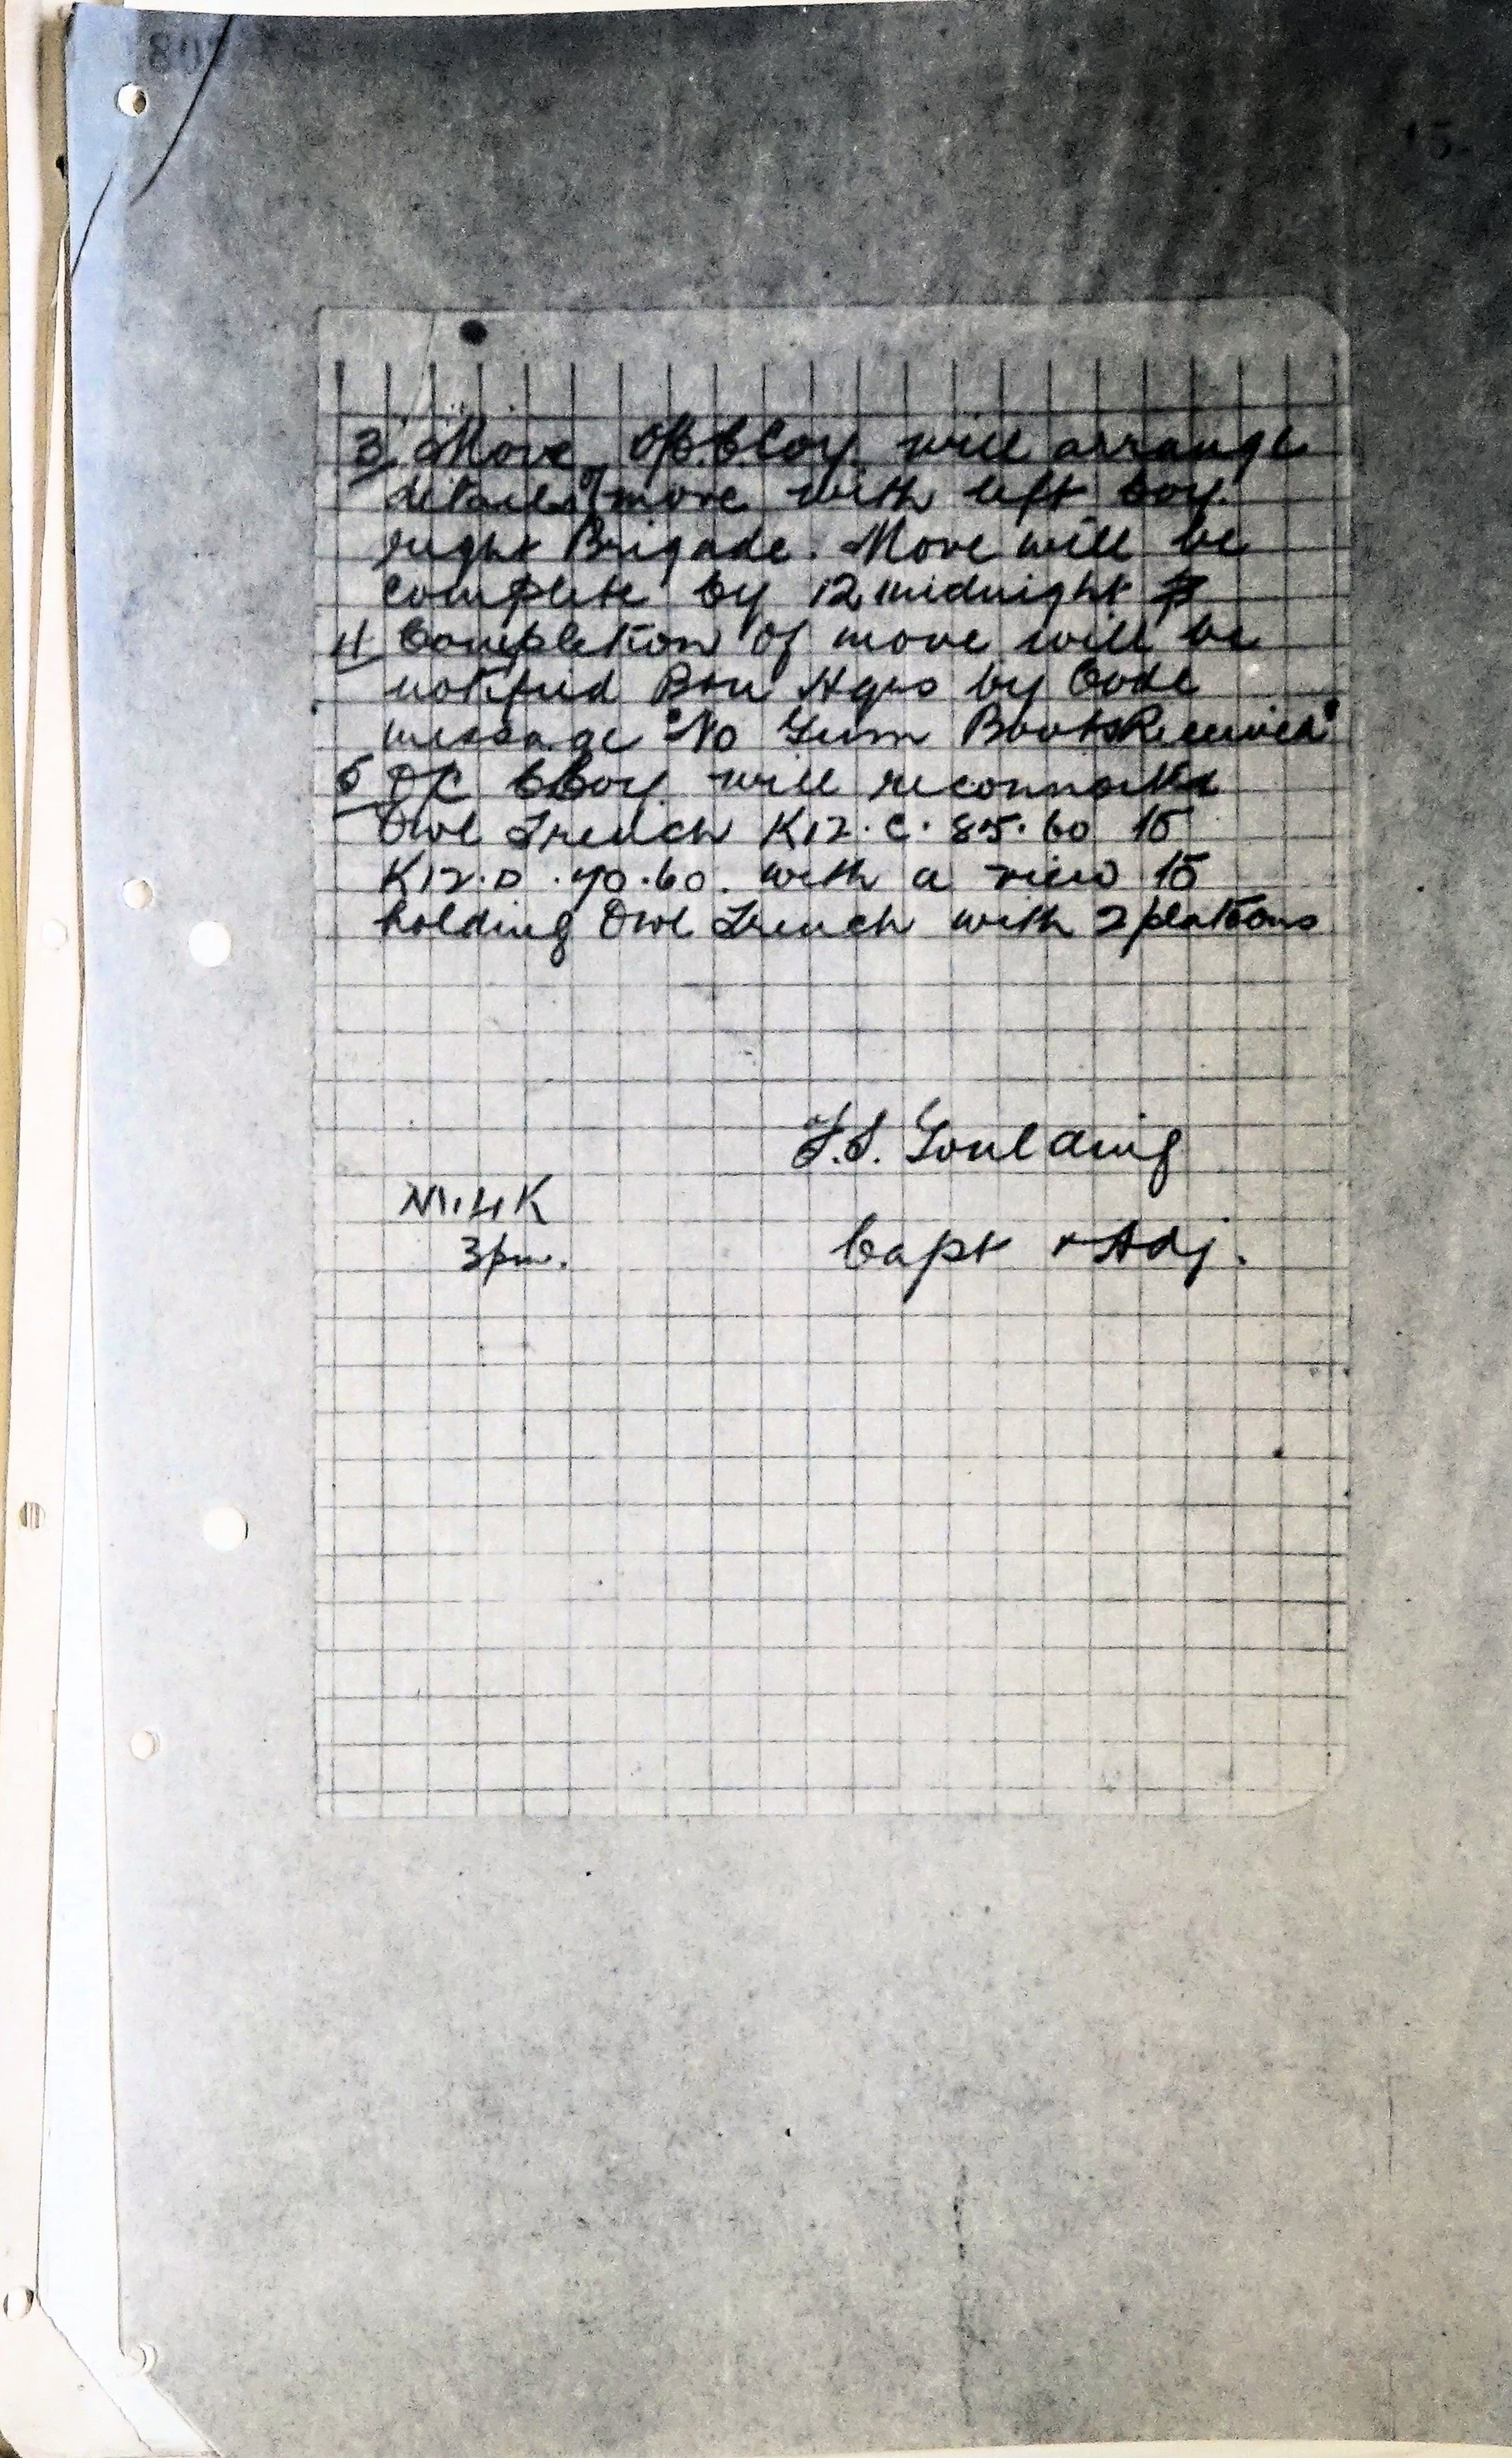 3/ Move. O/C. C Coy. will arrange
details of move with left Coy.
right Brigade. Move will be
complete by 12 midnight
4/ Completion of move will be
notified Btn Hqrs by Code
message "No Gum Boots Received"
5 OC C Coy. will reconnoitre
Owl Trench K12.c.85.60 to
K12.D.70.60. with a view to
holding Owl Trench with 2 platoons
F.S. Goulding
3pm.
Capt & Adj.